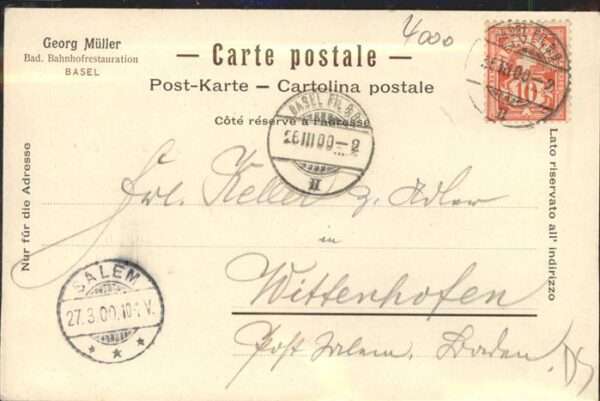 4000
Georg Müller
Bad. Bahnhofrestauration
BASEL
— Carte postale —
Post-Karte — Cartolina postale
Côté réservé à l'adresse
Nur für die Adresse
Lato riservato all' indirizzo
BASEL FIL. B.B.
26.III.00.–2
II
10
Frl. Keller z. Adler
in
Wittenhofen
Post Salem. Baden.
SALEM
27.3.00.10-1V.